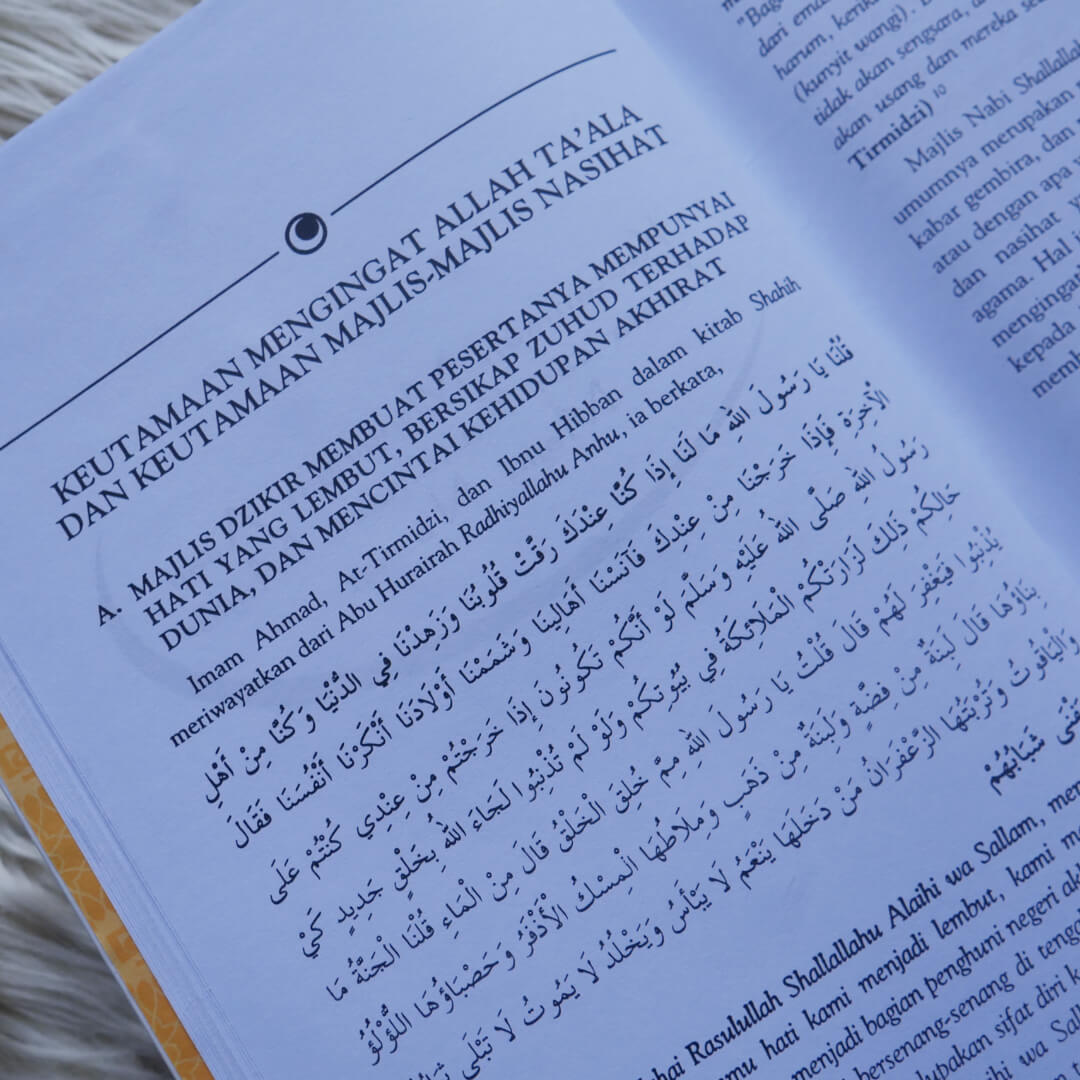 KEUTAMAAN MENGINGAT ALLAH TA'ALA
DAN KEUTAMAAN MAJLIS-MAJLIS NASIHAT
A. MAJLIS DZIKIR MEMBUAT PESERTANYA MEMPUNYAI
HATI YANG LEMBUT, BERSIKAP ZUHUD TERHADAP
DUNIA, DAN MENCINTAI KEHIDUPAN AKHIRAT
Imam Ahmad, At-Tirmidzi, dan Ibnu Hibban dalam kitab Shahih
meriwayatkan dari Abu Hurairah Radhiyallahu Anhu, ia berkata,
قُلْنَا يَا رَسُولَ اللهِ مَا لَنَا إِذَا كُنَّا عِنْدَكَ رَقَّتْ قُلُوبُنَا وَزَهِدْنَا فِي الدُّنْيَا وَكُنَّا مِنْ أَهْلِ
الْآخِرَةِ فَإِذَا خَرَجْنَا مِنْ عِنْدِكَ فَآنَسْنَا أَهَالِيَنَا وَشَمَمْنَا أَوْلَادَنَا أَنْكَرْنَا أَنْفُسَنَا فَقَالَ
رَسُولُ اللهِ صَلَّى اللهُ عَلَيْهِ وَسَلَّمَ لَوْ أَنَّكُمْ تَكُونُونَ إِذَا خَرَجْتُمْ مِنْ عِنْدِي كُنْتُمْ عَلَى
حَالِكُمْ ذَلِكَ لَزَارَتْكُمْ الْمَلَائِكَةُ فِي بُيُوتِكُمْ وَلَوْ لَمْ تُذْنِبُوا لَجَاءَ اللهُ بِخَلْقٍ جَدِيدٍ كَيْ
يُذْنِبُوا فَيَغْفِرَ لَهُمْ قَالَ قُلْتُ يَا رَسُولَ اللهِ مِمَّ خُلِقَ الْخَلْقُ قَالَ مِنْ الْمَاءِ قُلْنَا الْجَنَّةُ مَا
بِنَاؤُهَا قَالَ لَبِنَةٌ مِنْ فِضَّةٍ وَلَبِنَةٌ مِنْ ذَهَبٍ وَمِلَاطُهَا الْمِسْكُ الْأَذْفَرُ وَحَصْبَاؤُهَا اللُّؤْلُؤُ
وَالْيَاقُوتُ وَتُرْبَتُهَا الزَّعْفَرَانُ مَنْ دَخَلَهَا يَنْعَمُ لَا يَبْأَسُ وَيَخْلُدُ لَا يَمُوتُ لَا تَبْلَى
شَبَابُهُمْ
Rasulullah Shallallahu Alaihi wa Sallam,
hati kami menjadi lembut, kami
menjadi bagian penghuni negeri
bersenang-senang di
sifat diri
wa
dari
harum,
(kunyit wangi).
tidak akan sengsara,
akan usang dan mereka
Tirmidzi) 10
Majlis Nabi
umumnya merupakan
kabar gembira, dan
atau dengan apa
dan nasihat
agama. Hal
kepada